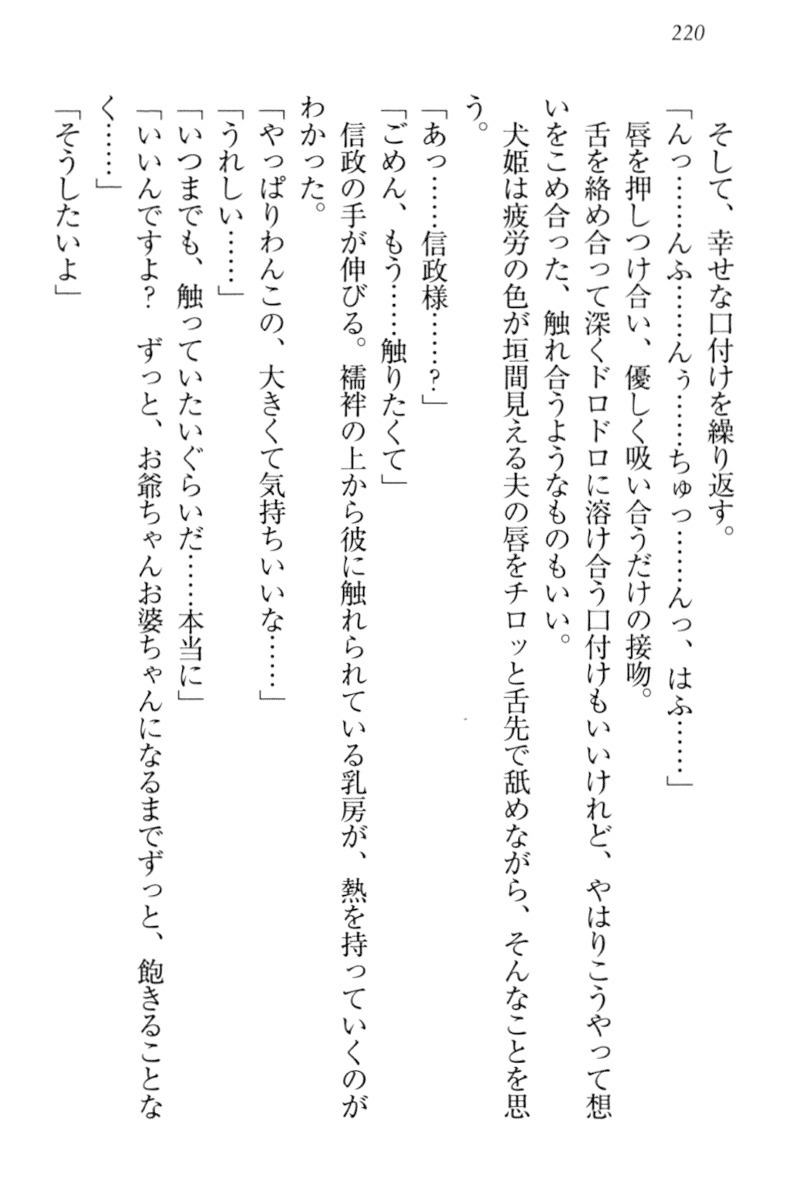 220
そして、幸せな口付けを繰り返す。
「んっ……んふ……んぅ……ちゅっ……んっ、はふ……」
唇を押しつけ合い、優しく吸い合うだけの接吻。
舌を絡め合って深くドロドロに溶け合う口付けもいいけれど、やはりこうやって想
いをこめ合った、触れ合うようなものもいい。
犬姫は疲労の色が垣間見える夫の唇をチロッと舌先で舐めながら、そんなことを思
う。
「あっ……信政様……？」
「ごめん、もう……触りたくて」
信政の手が伸びる。襦袢の上から彼に触れられている乳房が、熱を持っていくのが
わかった。
「やっぱりわんこの、大きくて気持ちいいな……」
「うれしい……」
「いつまでも、触っていたいぐらいだ……本当に」
「いいんですよ？　ずっと、お爺ちゃんお婆ちゃんになるまでずっと、飽きることな
く……」
「そうしたいよ」